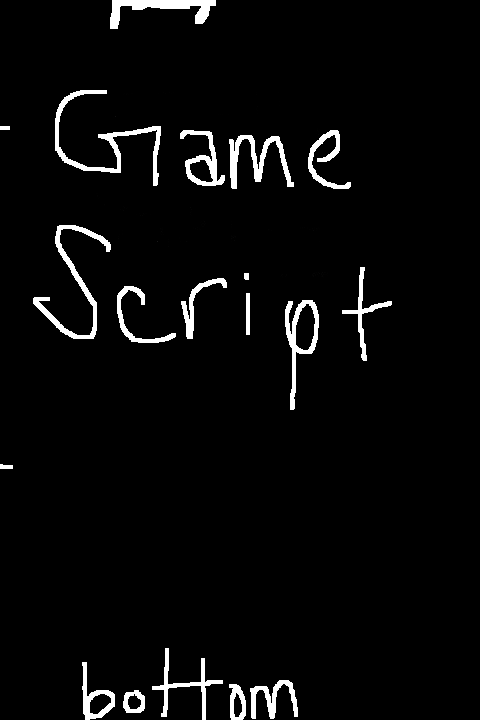 Game
Script
bottom